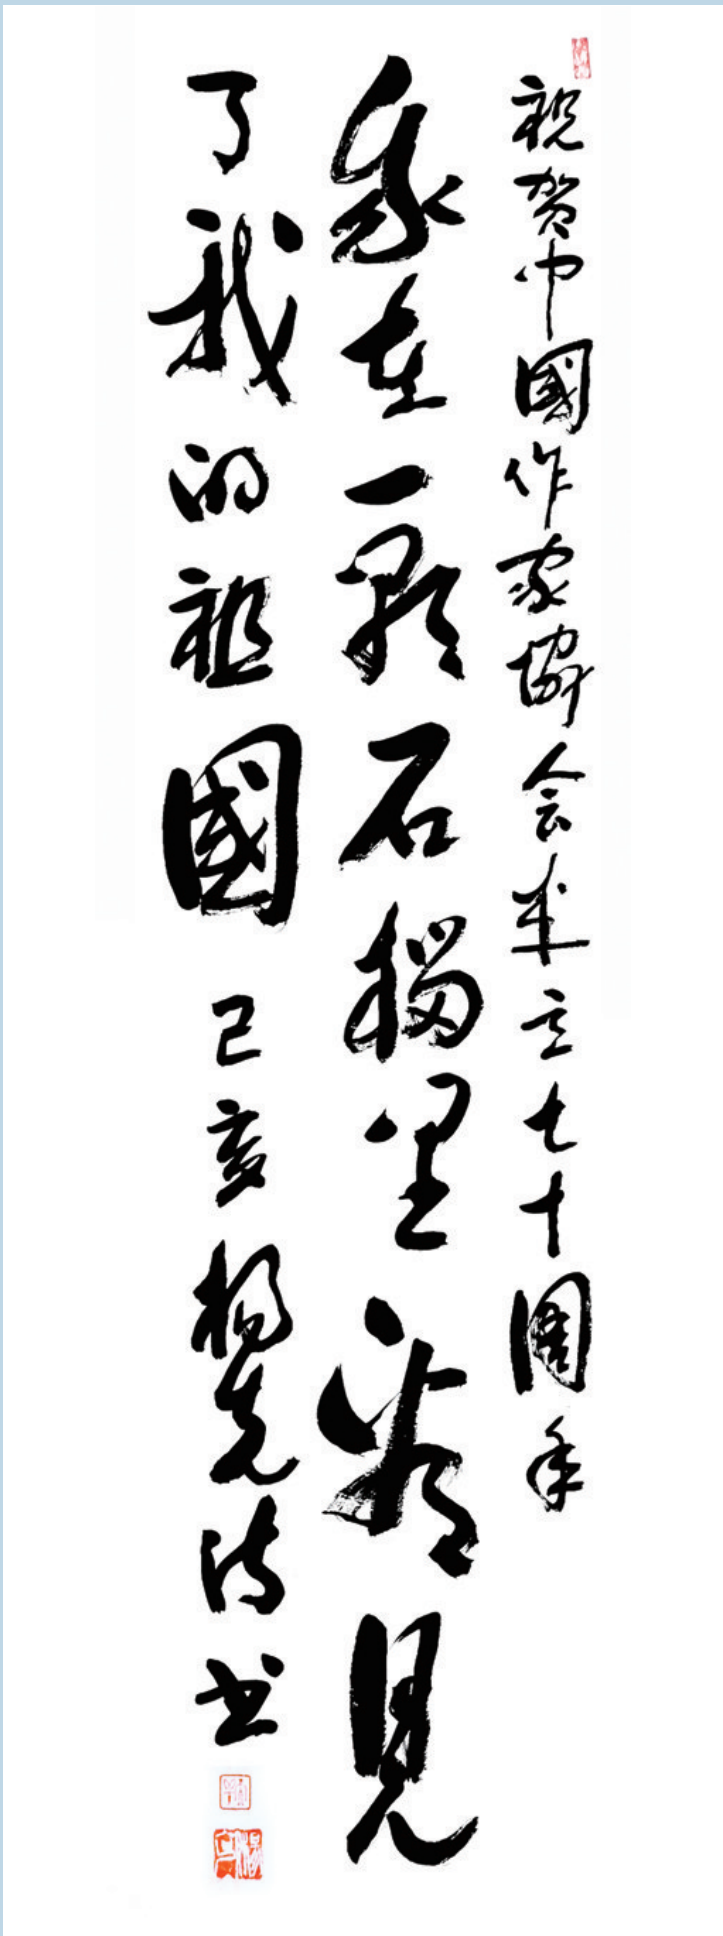 祝贺中國作家協会成立七十周年
我在一颗石榴里看見
了我的祖國 己亥 杨克诗书